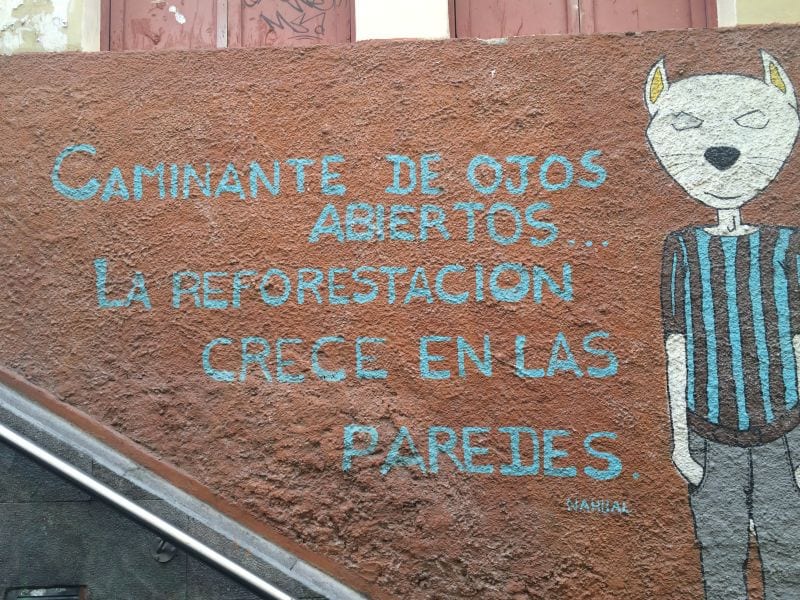 CAMINANTE DE OJOS
ABIERTOS...
LA REFORESTACION
CRECE EN LAS
PAREDES.